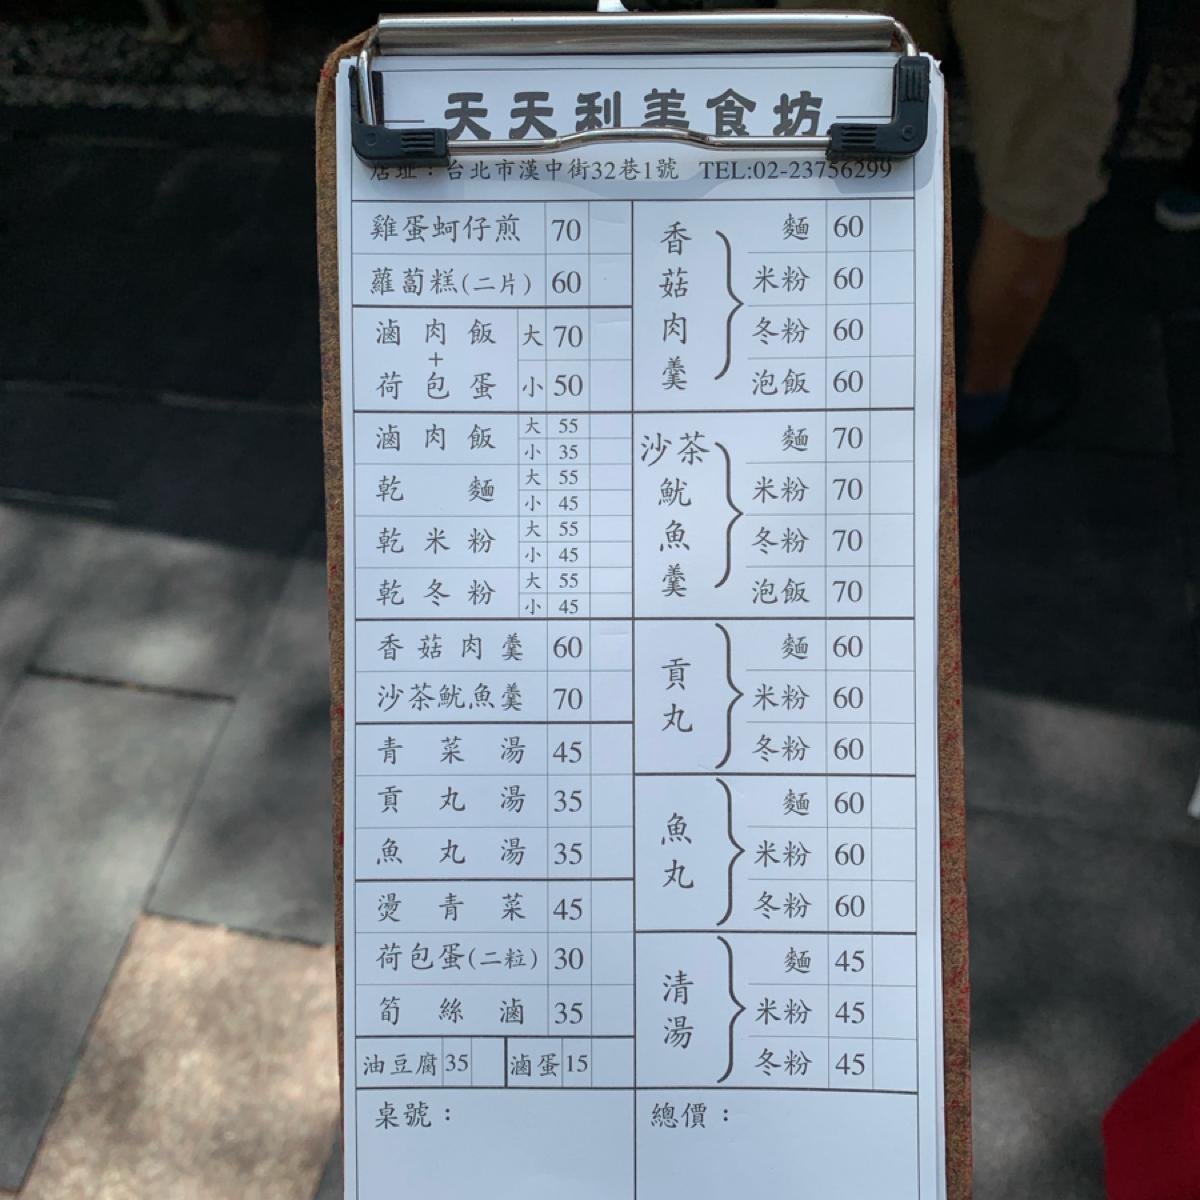 天天利美食坊
店址：台北市漢中街32巷1號 TEL:02-23756299
雞蛋蚵仔煎 70
蘿蔔糕(二片) 60
滷肉飯+荷包蛋 大 70
小 50
滷肉飯 大 55
小 35
乾麵 大 55
小 45
乾米粉 大 55
小 45
乾冬粉 大 55
小 45
香菇肉羹 60
沙茶魷魚羹 70
青菜湯 45
貢丸湯 35
魚丸湯 35
燙青菜 45
荷包蛋(二粒) 30
筍絲滷 35
油豆腐 35 滷蛋 15
桌號：
香菇肉羹
麵 60
米粉 60
冬粉 60
泡飯 60
沙茶魷魚羹
麵 70
米粉 70
冬粉 70
泡飯 70
貢丸
麵 60
米粉 60
冬粉 60
魚丸
麵 60
米粉 60
冬粉 60
清湯
麵 45
米粉 45
冬粉 45
總價：